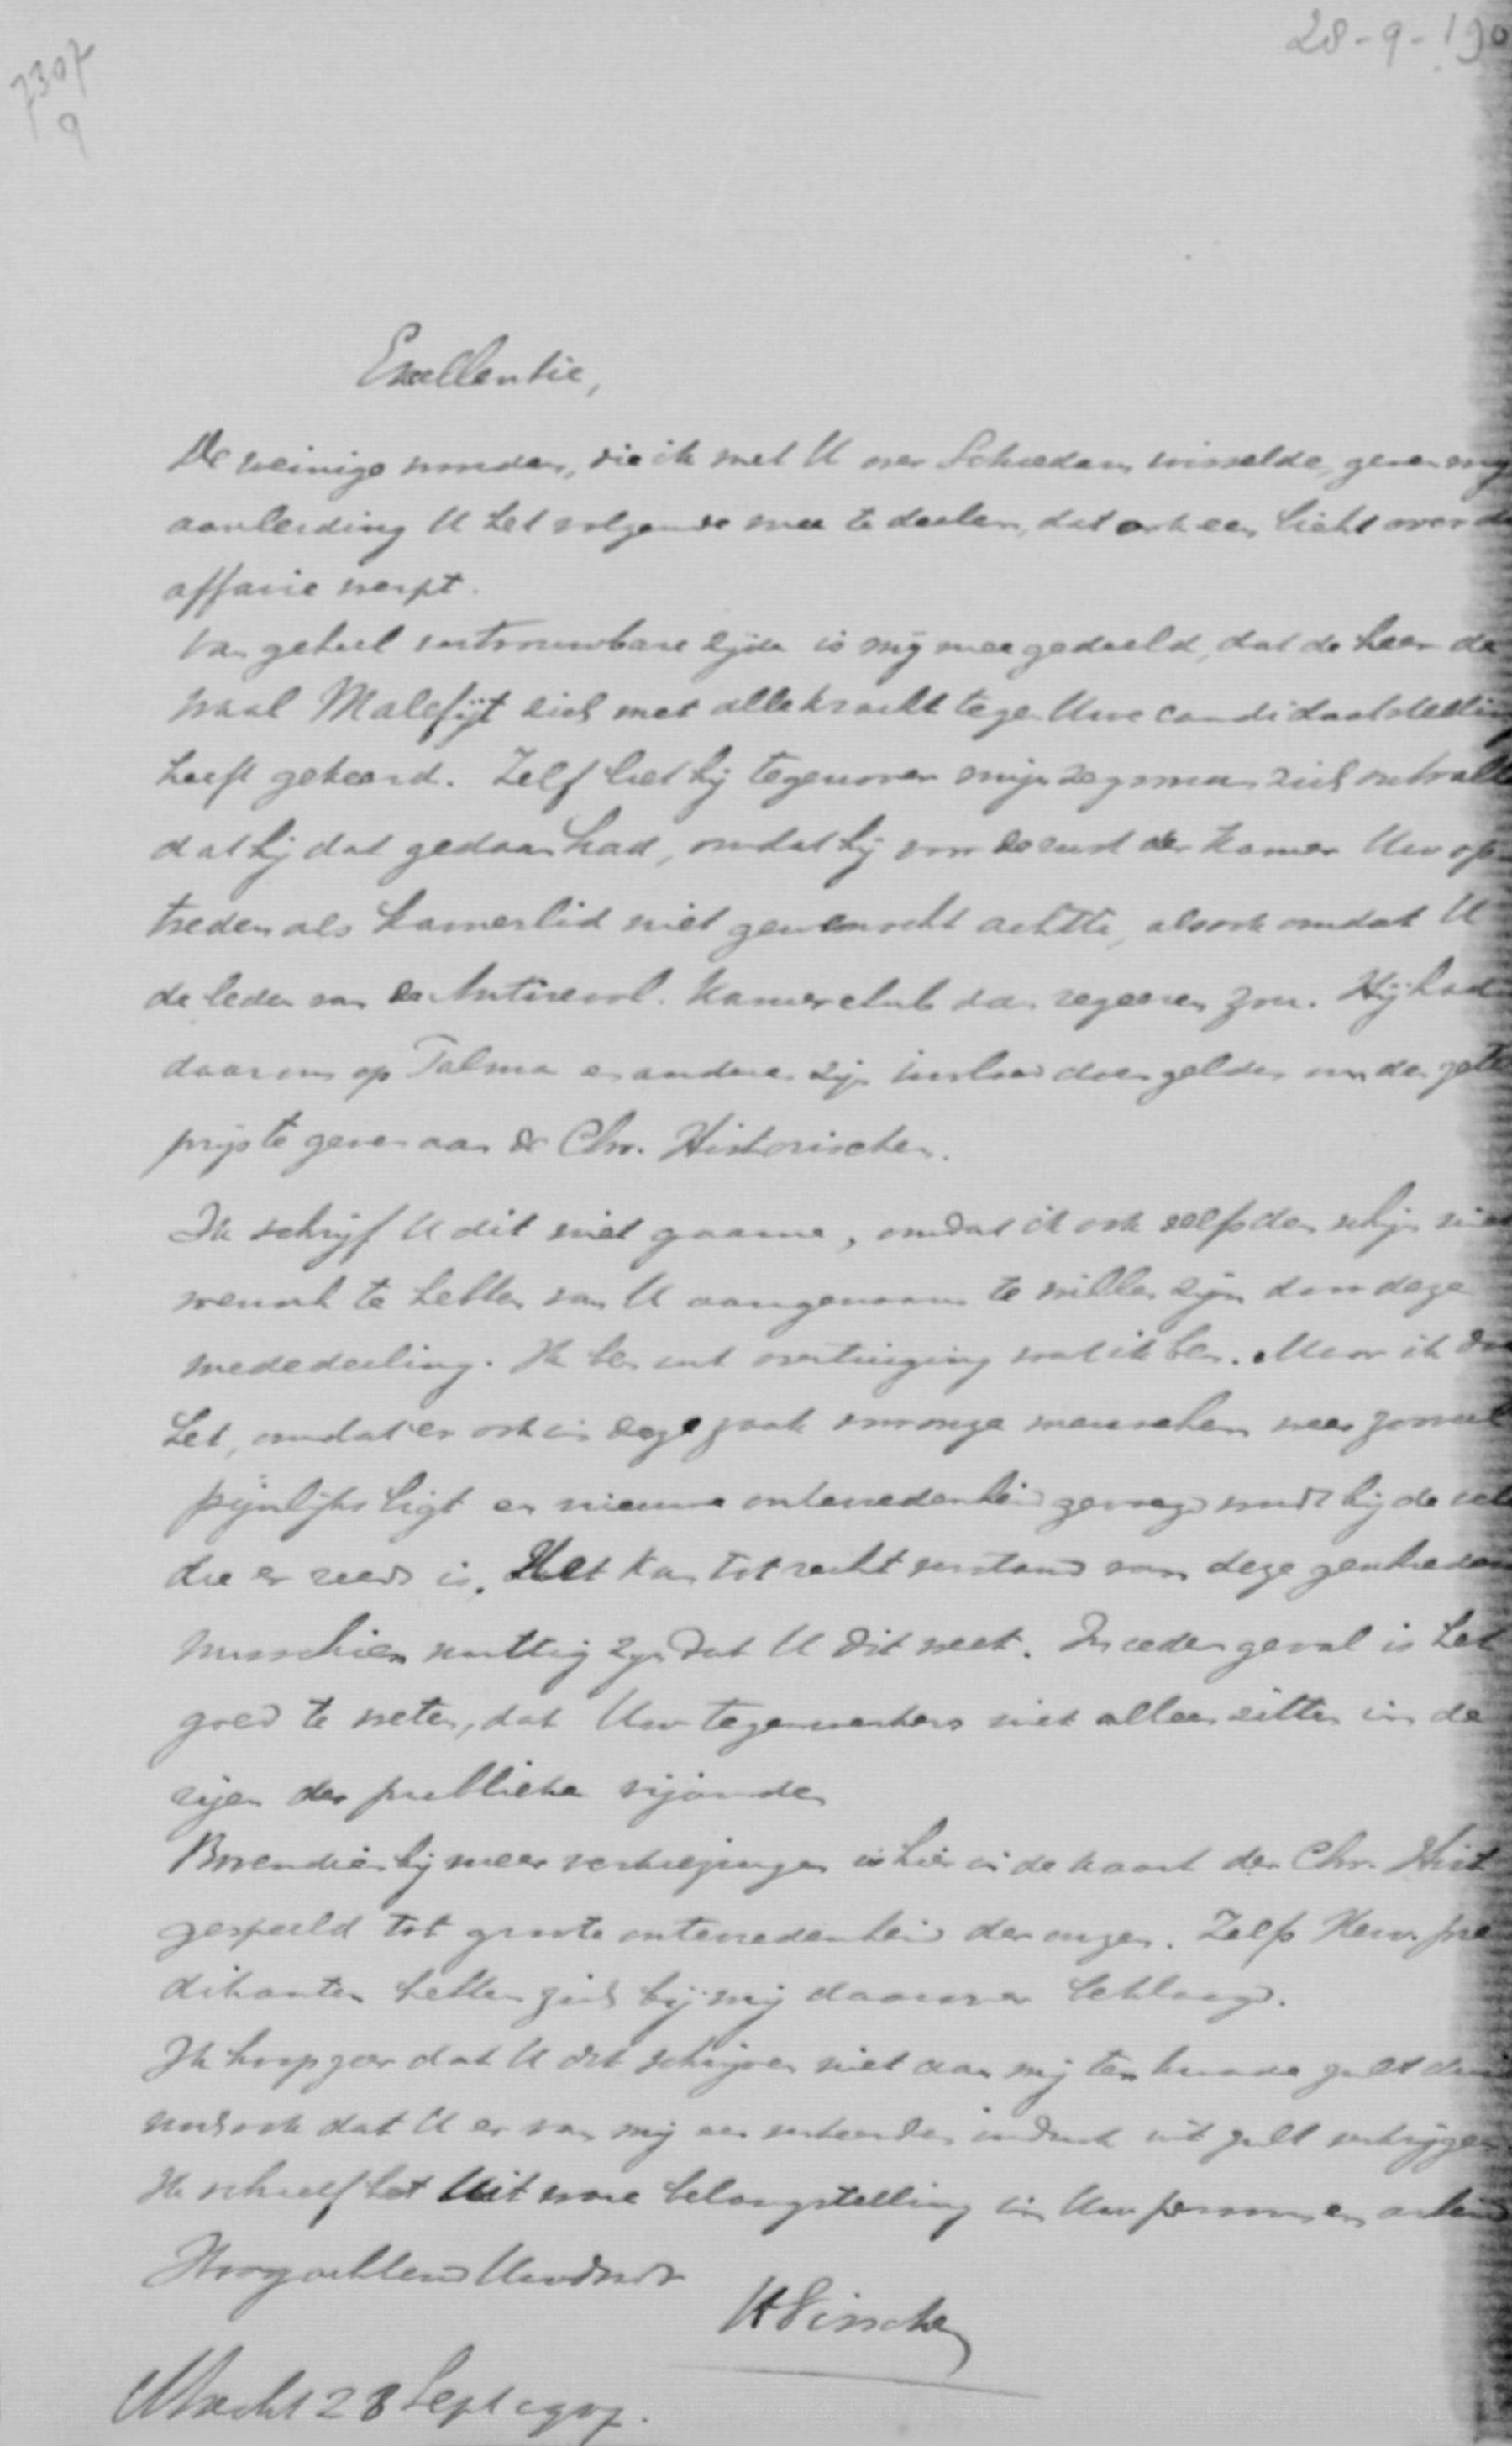 28-9-190
7307
9
Excellentie,
De weinige woorden, die ik met U over Schiedam wisselde, geven mij
aanleiding U het volgende mee te deelen, dat ook een licht over de
affaire werpt.
Van geheel vertrouwbare zijde is mij meegedeeld, dat de heer de
Waal Malefijt zich met alle kracht tegen Uwe candidaatstelling
heeft gekeerd. Zelf liet hij tegenover mijn zegsman zich ontvallen
dat hij dat gedaan had, omdat hij voor de rust der Kamer Uw op-
treden als Kamerlid niet gewenscht achtte, alsook omdat U
de leden van de Antirevol. Kamerclub dan regeeren zou. Hij had
daarom op Talma en anderen zijn invloed doen gelden om den zetel
prijs te geven aan de Chr. Historischen.
Ik schrijf U dit niet gaarne, omdat ik ook zelfs den schijn niet
wensch te hebben van U aangenaam te willen zijn door deze
mededeeling. Ik ben uit overtuiging wat ik ben. Maar ik doe
het, omdat er ook in deze zaak voor onze menschen weer zooveel
pijnlijks ligt en nieuwe ontevredenheid gevoegd wordt bij de vele
die er reeds is. Het kan tot recht verstand van deze gebeurtenissen
misschien nuttig zijn dat U dit weet. In ieder geval is het
goed te weten, dat Uw tegenwerkers niet alleen zitten in de
rijen der publieke vijanden
Bovendien bij meer verkiezingen is hier in de kaart der Chr. Hist.
gespeeld tot groote ontevredenheid der onzen. Zelfs Herv. pre
dikanten hebben zich bij mij daarover beklaagd.
Ik hoop zeer dat U dit schrijven niet aan mij ten kwade zult duiden
noch ook dat U er van mij een verkeerden indruk uit zult verkrijgen
Ik schreef het uit ware belangstelling in Uw persoon en arbeid
Hoogachtend Uwdndr
H Visscher
Utrecht 28 Sept 1907.